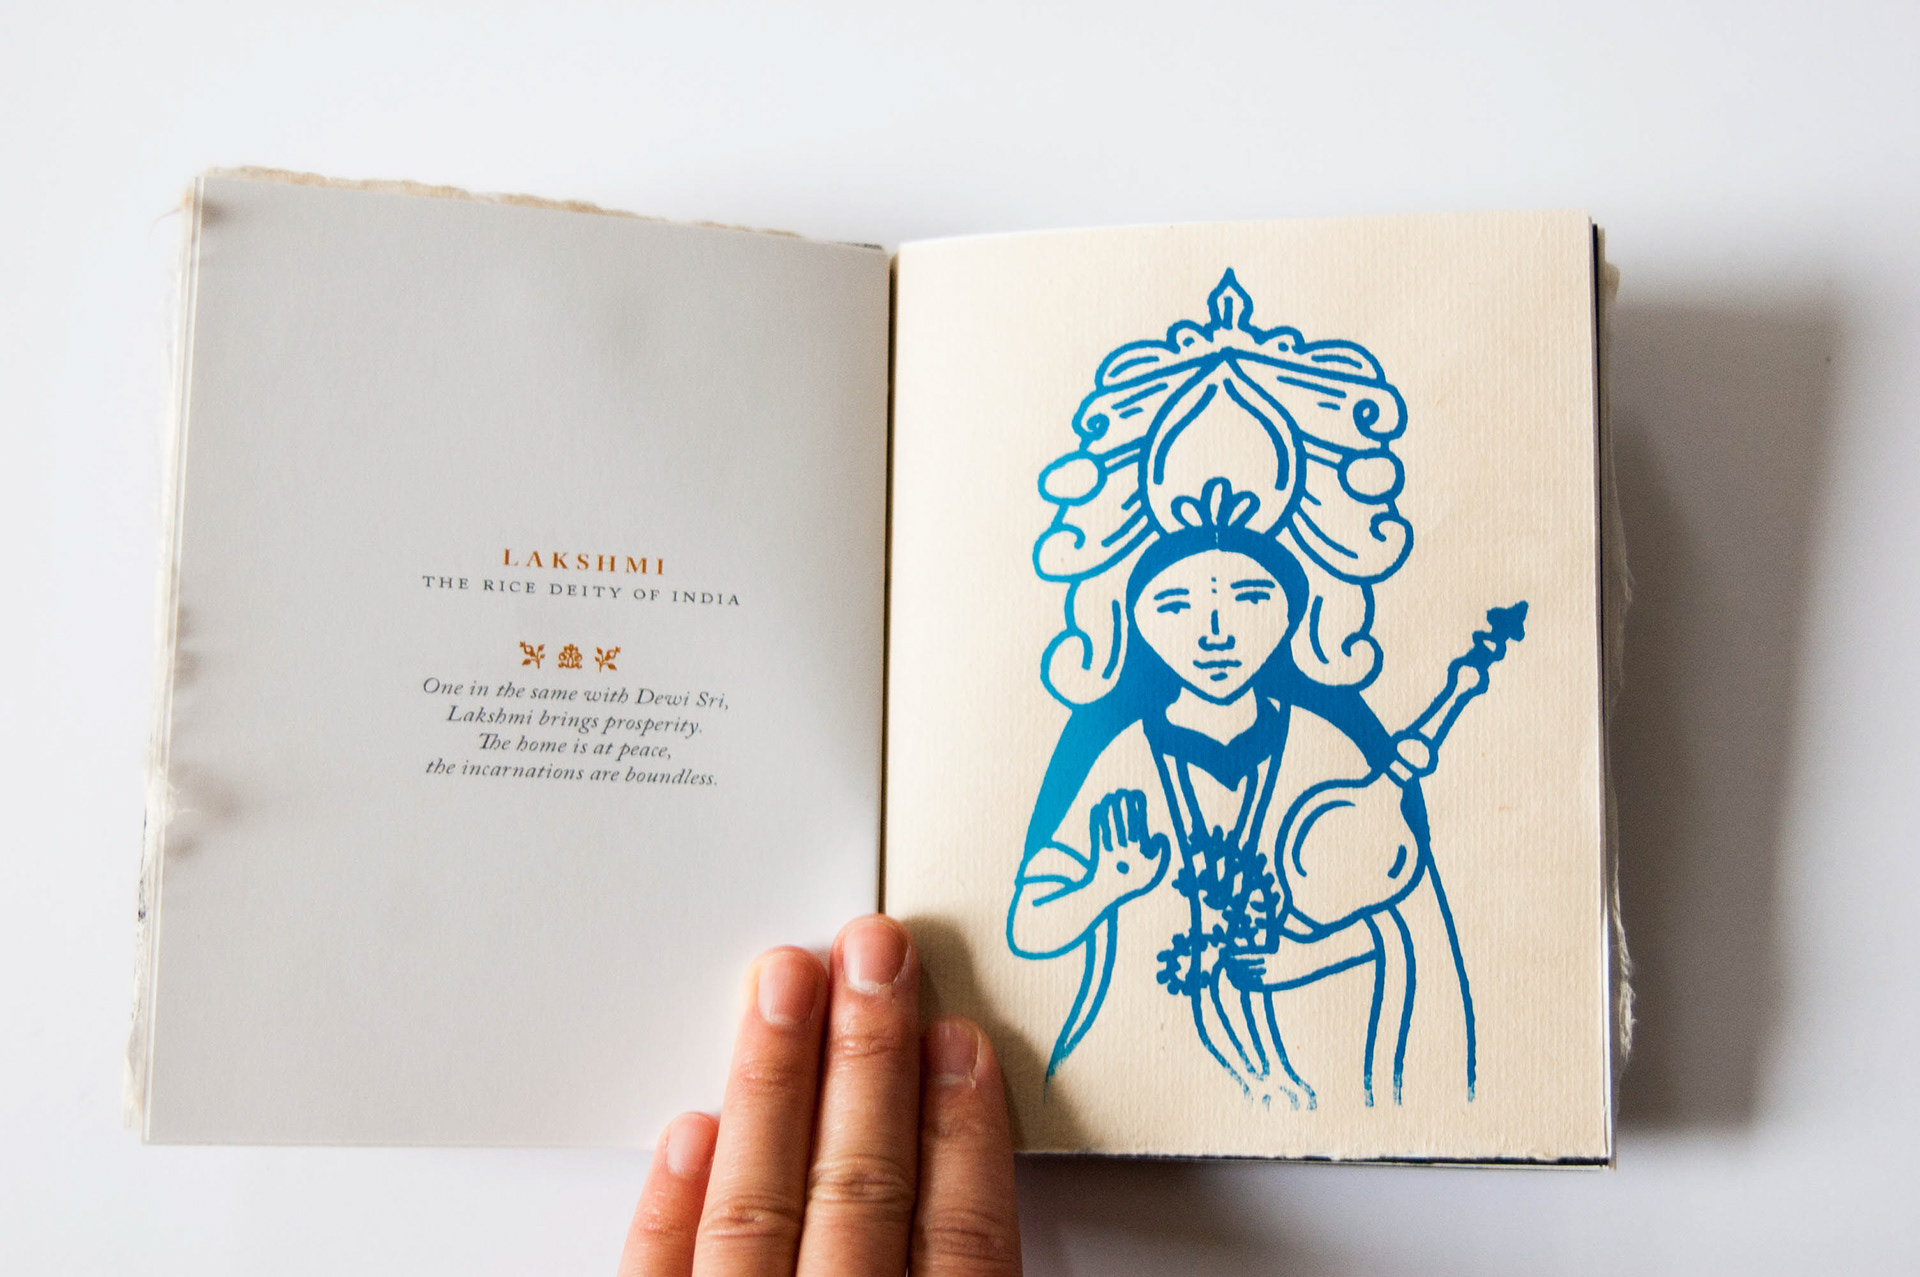 LAKSHMI
THE RICE DEITY OF INDIA
One in the same with Dewi Sri,
Lakshmi brings prosperity.
The home is at peace,
the incarnations are boundless.